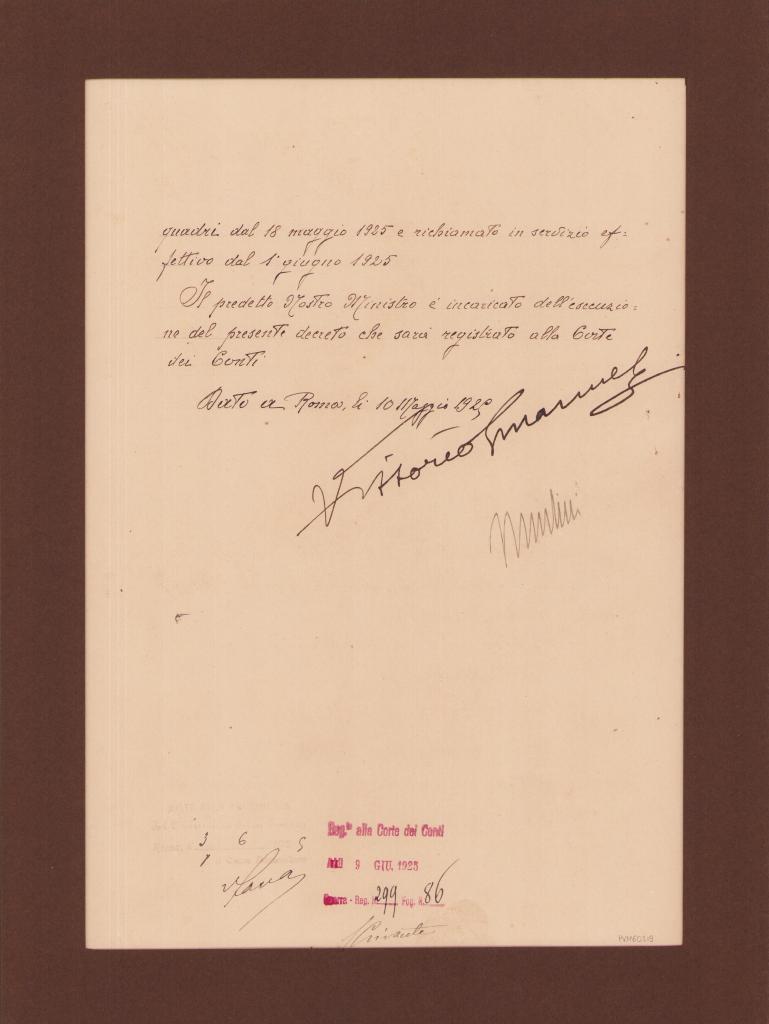 quadri dal 18 maggio 1925 e richiamato in servizio ef=
fettivo dal 1° giugno 1925
Il predetto Nostro Ministro è incaricato dell'esecuzio=
ne del presente decreto che sarà registrato alla Corte
dei Conti
Dato a Roma, li 10 Maggio 1925
Vittorio Emanuele
Reg.to alla Corte dei Conti
Addì 9 GIU. 1925
Guerra - Reg. N. 299 Fog. N. 86
3 6 5
1